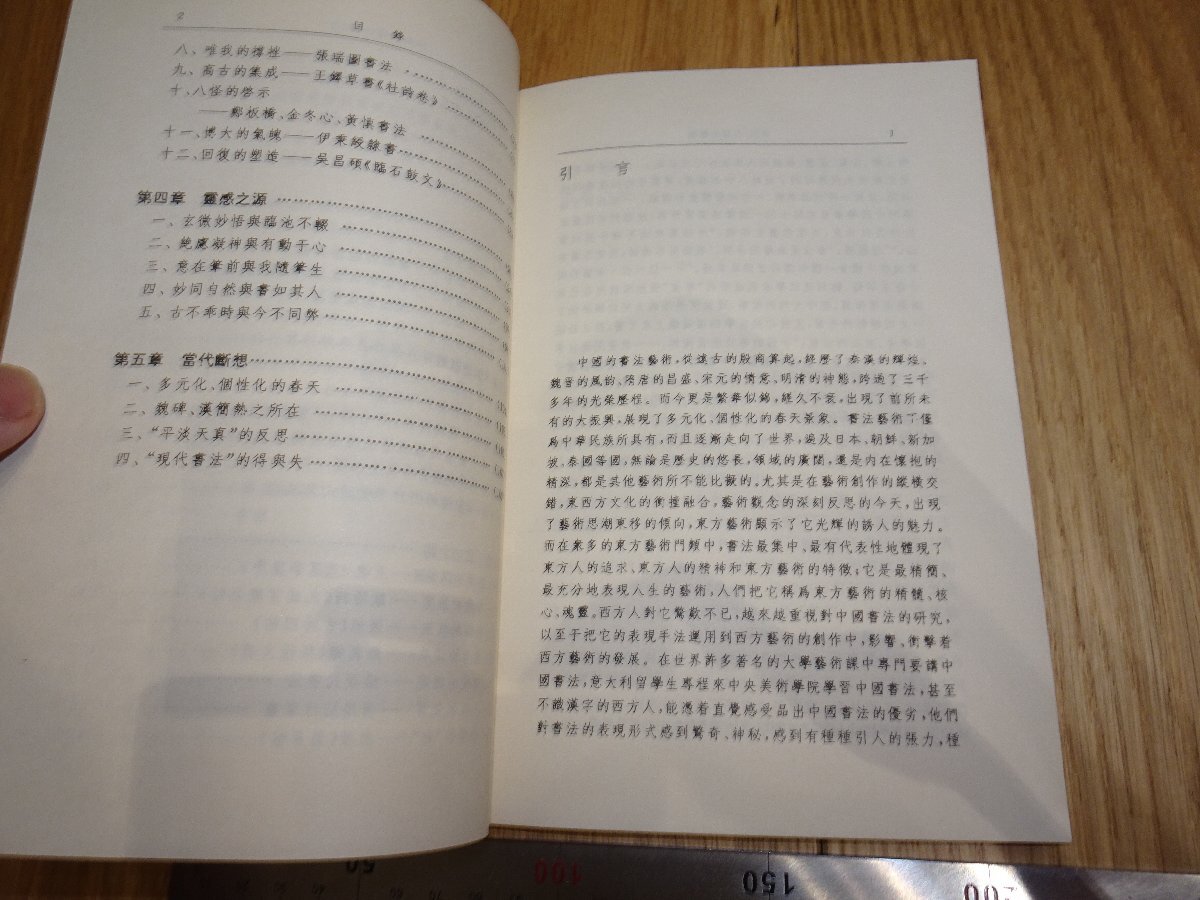 2
目 錄
八、唯我的縛挫——張瑞圖書法
九、高古的集成——王鐸草書《杜詩卷》
十、八怪的啓示
——鄭板橋、金冬心、黃慎書法
十一、博大的氣魄——伊秉綬隸書
十二、回復的塑造——吳昌碩《臨石鼓文》
第四章 靈感之源
一、玄微妙悟與臨池不輟
二、絶慮凝神與有動于心
三、意在筆前與我隨筆生
四、妙同自然與書如其人
五、古不乖時與今不同弊
第五章 當代斷想
一、多元化、個性化的春天
二、魏碑、漢簡熱之所在
三、“平淡天真”的反思
四、“現代書法”的得與失
1
引 言
中國的書法藝術，從遠古的殷商算起，經歷了秦漢的輝煌、
魏晉的風韵、隋唐的昌盛、宋元的情意、明清的神態，跨過了三千
多年的光榮歷程。而今更是繁華似錦，經久不衰，出現了前所未
有的大振興，展現了多元化、個性化的春天景象。書法藝術不僅
爲中華民族所具有，而且逐漸走向了世界，遍及日本、朝鮮、新加
坡、泰國等國，無論是歷史的悠長，領域的廣闊，還是内在懷抱的
精深，都是其他藝術所不能比擬的。尤其是在藝術創作的縱横交
錯，東西方文化的衝撞融合，藝術觀念的深刻反思的今天，出現
了藝術思潮東移的傾向，東方藝術顯示了它光輝的誘人的魅力。
而在衆多的東方藝術門類中，書法最集中、最有代表性地體現了
東方人的追求、東方人的精神和東方藝術的特徵；它是最精簡、
最充分地表現人生的藝術，人們把它稱爲東方藝術的精髓、核
心、魂靈。西方人對它驚歎不已，越來越重視對中國書法的研究，
以至于把它的表現手法運用到西方藝術的創作中，影響、衝擊着
西方藝術的發展。在世界許多著名的大學藝術課中專門要講中
國書法，意大利留學生專程來中央美術學院學習中國書法，甚至
不識漢字的西方人，能憑着直覺感受品出中國書法的優劣，他們
對書法的表現形式感到驚奇、神秘，感到有種種引人的張力，種
50
100
150
200